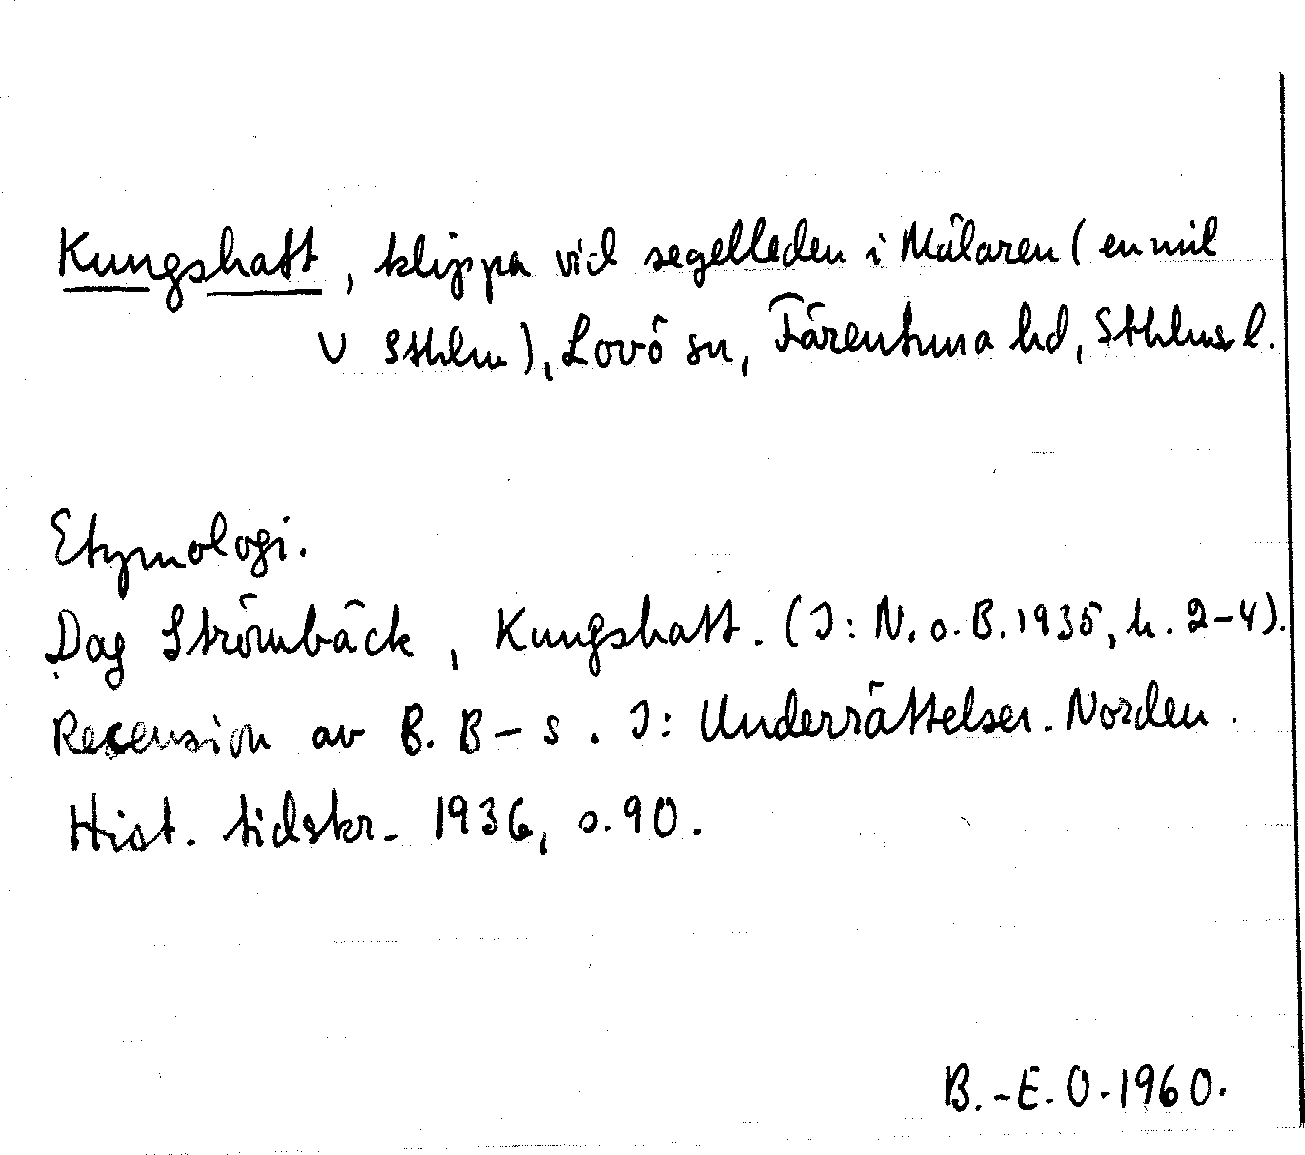 Kungshatt, klippa vid segelleden i Mälaren (en mil
V Sthlm), Lovö sn, Färentuna hd, Sthlms l.
Etymologi.
Dag Strömbäck, Kungshatt. (I: N. o. B. 1935, h. 2-4).
Recension av B. B-s. I: Underrättelser. Norden.
Hist. tidskr. 1936, s. 90.
B.-E. O. 1960.